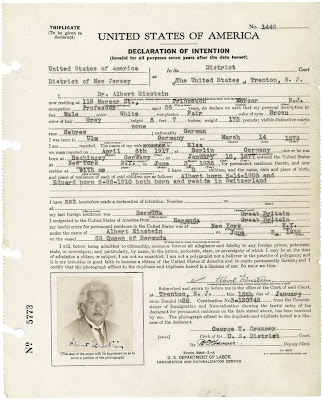 TRIPLICATE
(To be given to declarant)
No. 1442
UNITED STATES OF AMERICA
DECLARATION OF INTENTION
(Invalid for all purposes seven years after the date hereof)
United States of America
District of New Jersey
In the District Court
of The United States, Trenton, N. J.
I, Dr. Albert Einstein
now residing at 112 Mercer St., Princeton Mercer N.J.
occupation Professor, aged 56 years, do declare on oath that my personal description is:
Sex Male, color White, complexion Fair, color of eyes Brown
color of hair Grey, height 5 feet 7 inches; weight 175 pounds; visible distinctive marks
none
race Hebrew; nationality German
I was born in Ulm Germany, on March 14 1879
I am married. The name of my wife is Elsa
we were married on April 6th 1917, at Berlin Germany; she or he was
born at Hechingen Germany, on January 18, 1877, entered the United States
at New York N.Y., on June 3, 1935, for permanent residence therein, and now
resides at with me. I have 2 children, and the name, date and place of birth,
and place of residence of each of said children are as follows: Albert born 5-14-1905 and
Eduard born 6-28-1910 both born and reside in Switzerland
I have not heretofore made a declaration of intention: Number, on
at
my last foreign residence was Bermuda Great Britain
I emigrated to the United States of America from Bermuda Great Britain
my lawful entry for permanent residence in the United States was at New York N.Y.
under the name of Albert Einstein, on June 3, 1935
on the vessel SS Queen of Bermuda
I will, before being admitted to citizenship, renounce forever all allegiance and fidelity to any foreign prince, potentate,
state, or sovereignty, and particularly, by name, to the prince, potentate, state, or sovereignty of which I may be at the time
of admission a citizen or subject; I am not an anarchist; I am not a polygamist nor a believer in the practice of polygamy; and
it is my intention in good faith to become a citizen of the United States of America and to reside permanently therein; and I
certify that the photograph affixed to the duplicate and triplicate hereof is a likeness of me: SO HELP ME GOD.
Albert Einstein
Subscribed and sworn to before me in the office of the Clerk of said Court,
at Trenton, N. J. this 15th day of January
anno Domini 1936. Certification No. 3-120742 from the Commissioner
of Immigration and Naturalization showing the lawful entry of the
declarant for permanent residence on the date stated above, has been received
by me. The photograph affixed to the duplicate and triplicate hereof is a likeness
of the declarant.
George T. Cranmer
Clerk of the U. S. District Court.
By Deputy Clerk.
Form 2202-L-A
U. S. DEPARTMENT OF LABOR
IMMIGRATION AND NATURALIZATION SERVICE
No 5773
Albert Einstein